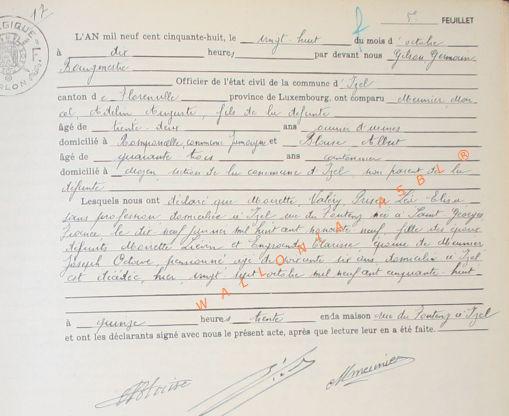 17
5e FEUILLET
L'AN mil neuf cent cinquante-huit, le vingt-huit du mois d'octobre
à dix heures, par devant nous Gilson Germain
Bourgmestre
Officier de l'état civil de la commune d'Izel
canton de Florenville province de Luxembourg, ont comparu Meunier, Mar-
cel, Adelin Auguste, fils de la défunte
âgé de trente-deux ans ouvrier d'usines
domicilié à commune Jamoigne et Blaise Albert
âgé de quarante trois ans cantonnier
domicilié à Moyen, section de la commune d'Izel, non parent de la
défunte
Lesquels nous ont déclaré que Marie Zoé Elisa
sans profession domiciliée à Izel rue du née à Saint Georges
France le dix neuf janvier mil huit cent nonante neuf, fille des époux
défunts et épouse de Meunier
Joseph Octave, pensionné âgé de soixante six ans domicilié à Izel
est décédée, hier, vingt sept octobre mil neuf cent cinquante-huit
à quinze heures trente en da maison rue du à Izel
et ont les déclarants signé avec nous le présent acte, après que lecture leur en a été faite.
ABlaise
MMeunier
WALLONIA ASBL ®